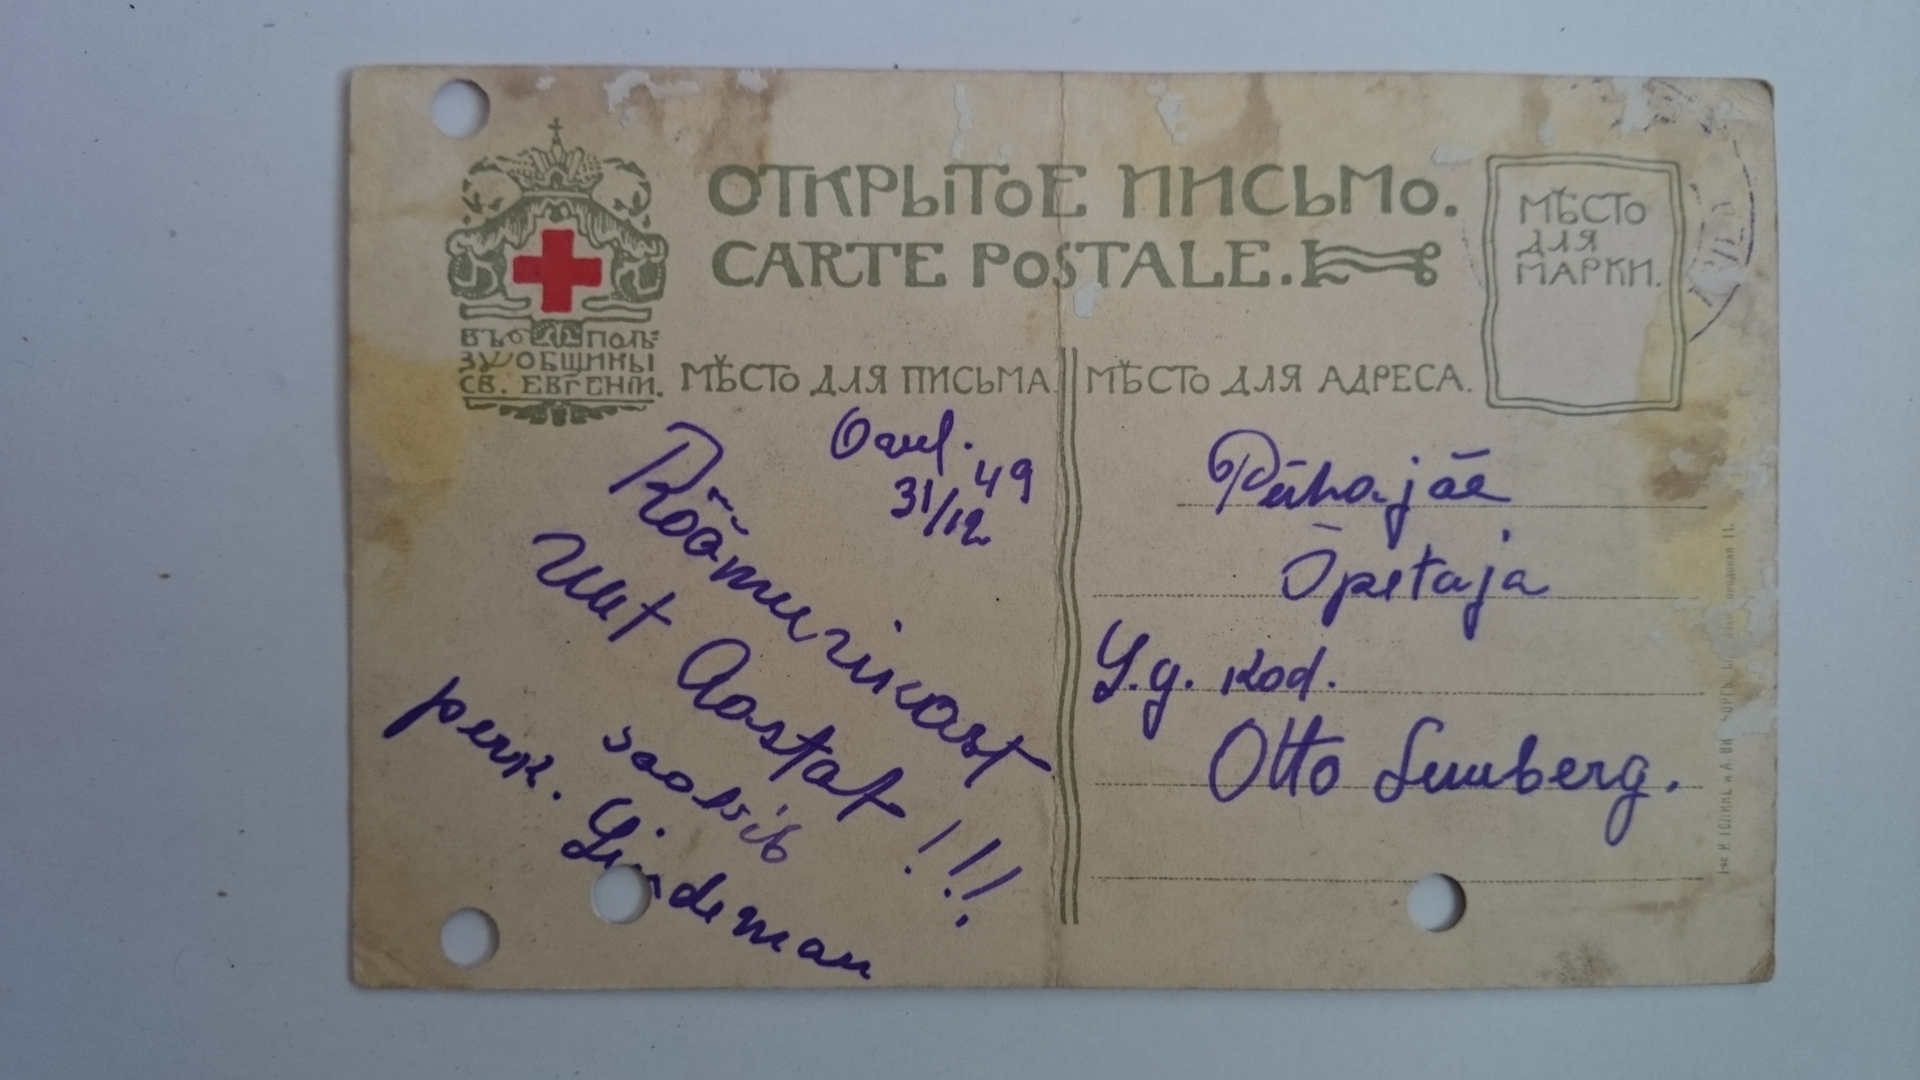 ОТКРЫТОЕ ПИСЬМО.
CARTE POSTALE.
МѢСТО
ДЛЯ
МАРКИ.
ВЪ ПОЛЬ=
ЗУ ОБЩИНЫ
СВ. ЕВГЕНІИ.
МѢСТО ДЛЯ ПИСЬМА.
МѢСТО ДЛЯ АДРЕСА.
49
31/12
Rõõmurikast
Uut Aastat!!!
soovib
perk. Lindeman
Pühajõe
Õpetaja
L.g. kod.
Otto